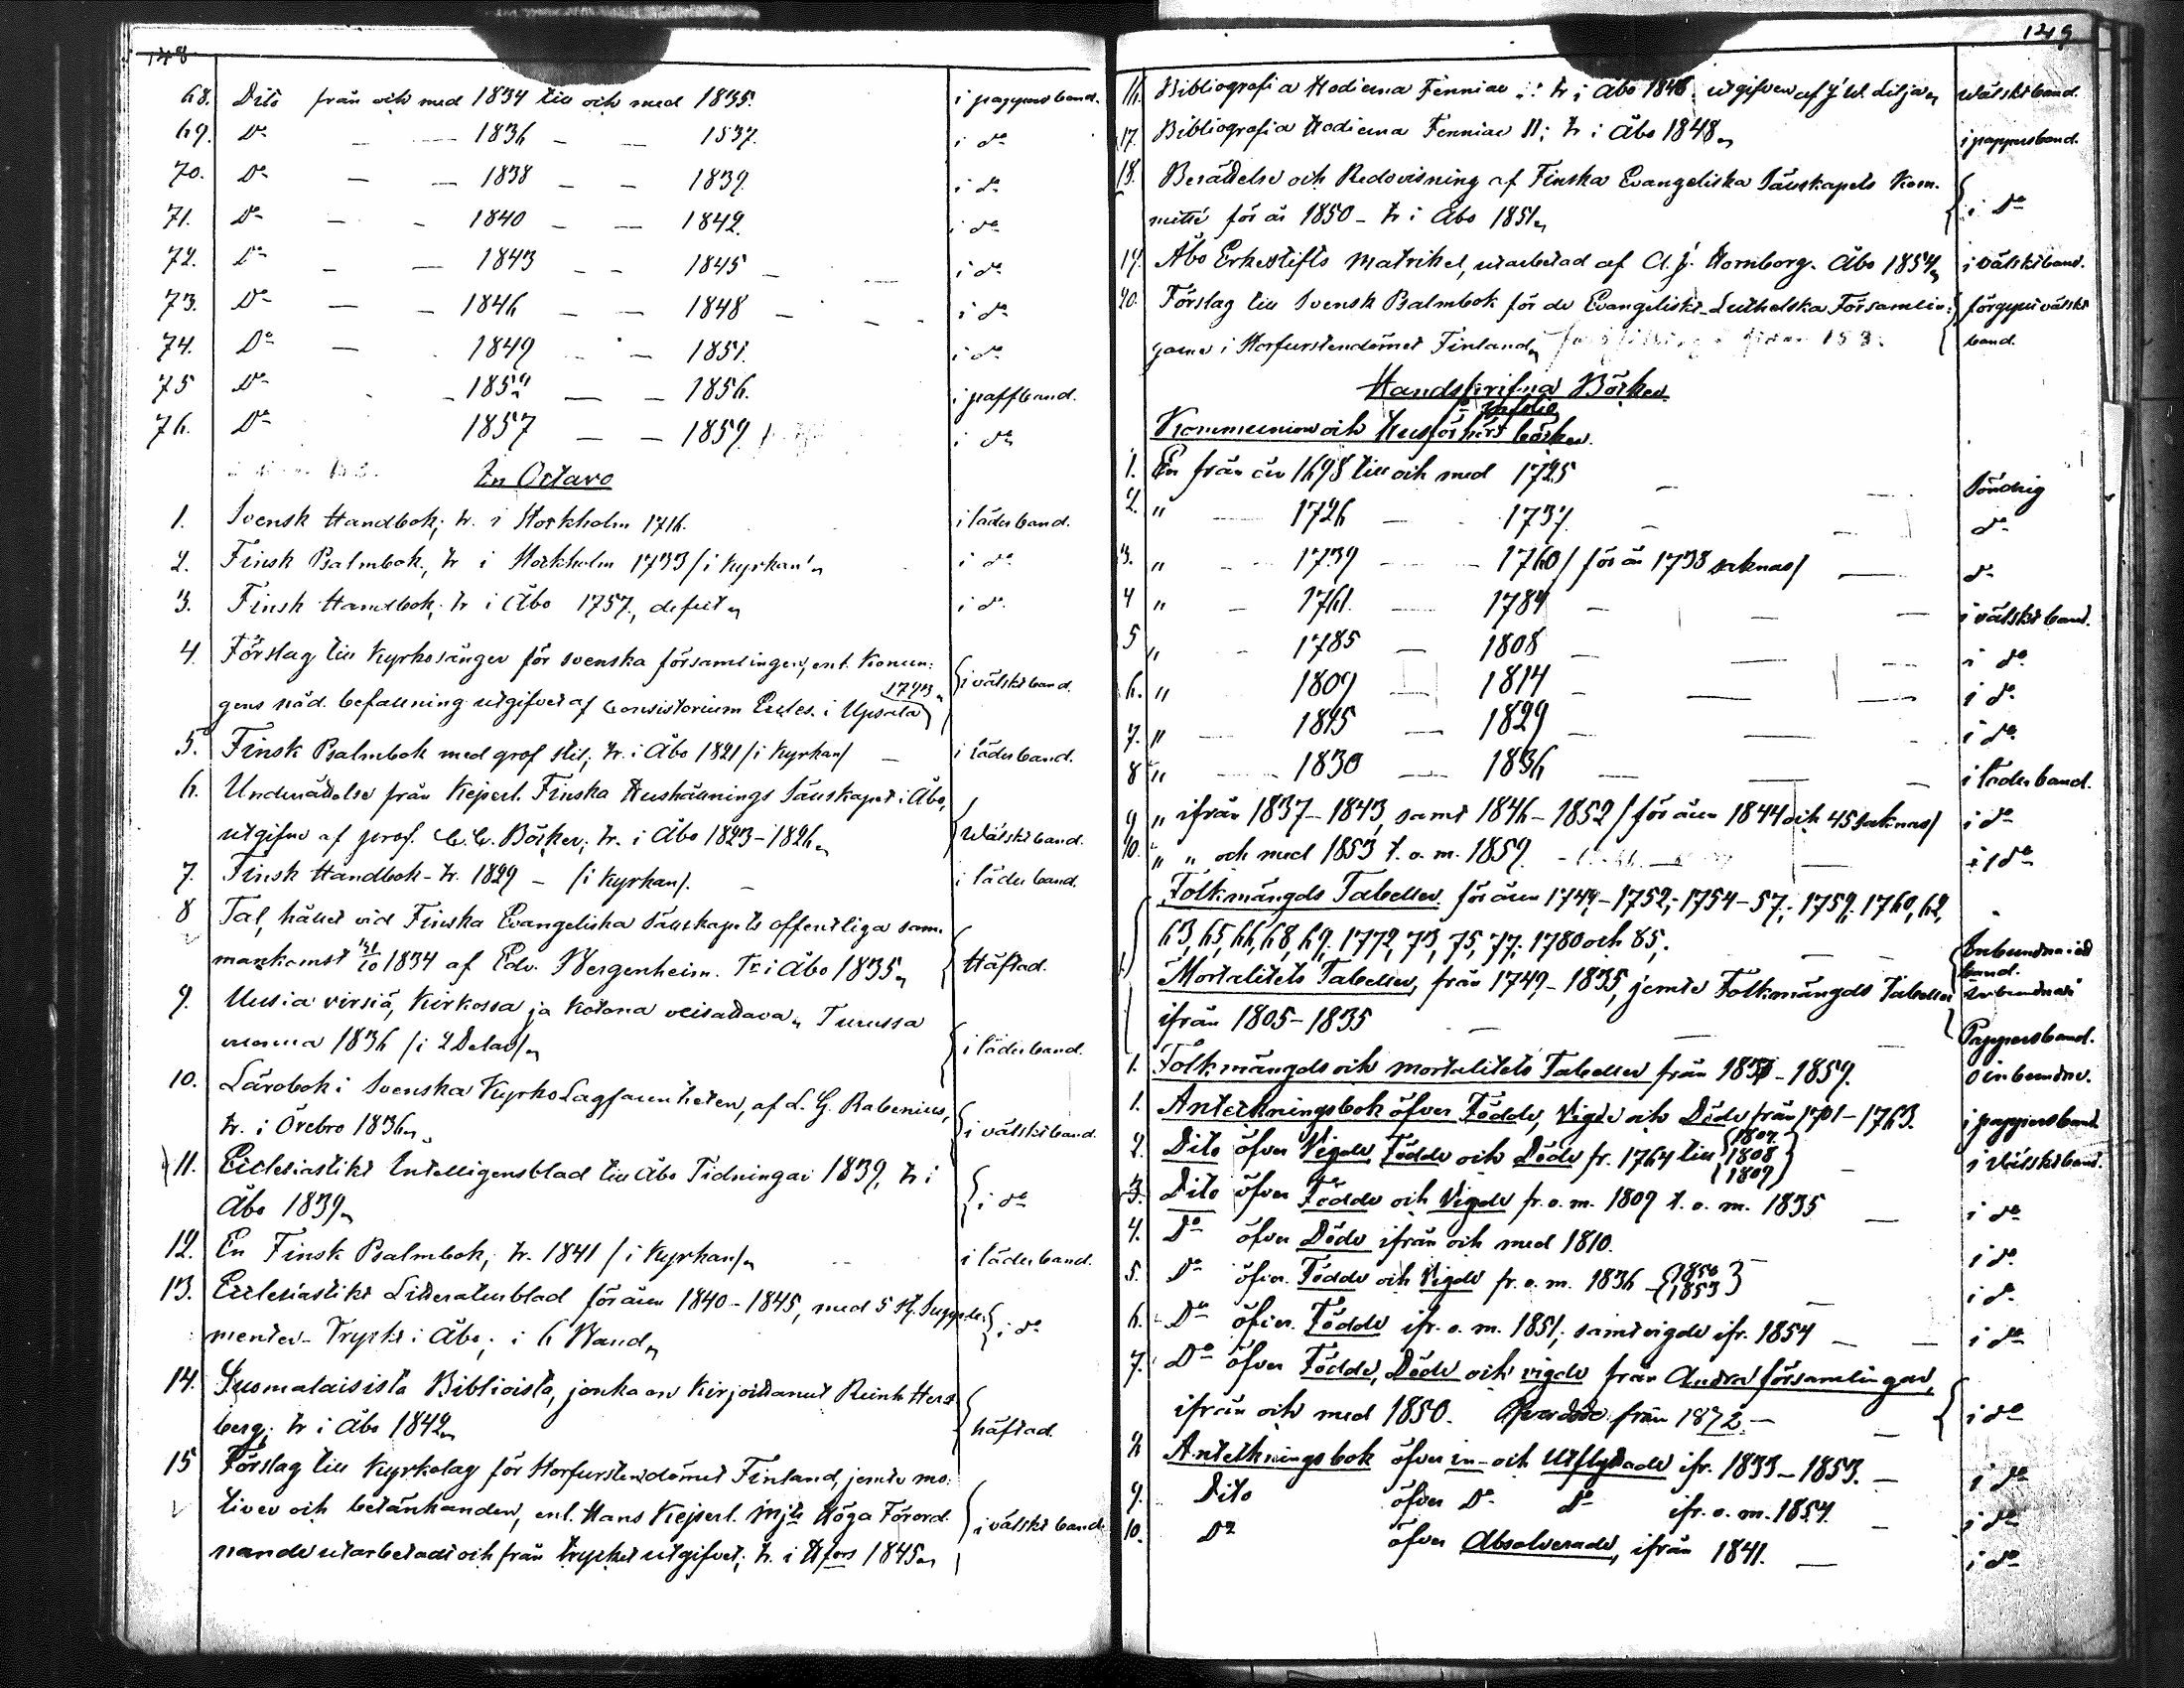 148
68. Dito från och med 1834 till och med 1835. i pappersband.
69. Do — — 1836 — — 1837. i do
70. Do — — 1838 — — 1839. i do
71. Do — - 1840 — — 1842. i do
72. Do - — 1843 - - 1845 — i do
73. Do — — 1846 — — 1848 — i do
74. Do — 1849 — 1851. i do
75 Do - 1852 — — 1856. i paffband.
76. Do 1857 — — 1859. i do
In Octavo
1. Svensk Handbok; tr. i Stockholm 1716. i läderband.
2. Finsk Psalmbok, tr i Stockholm 1733 / i Kyrkan/ i do
3. Finsk Handbok; tr i Åbo 1757., defect i do
4. Förslag till Kyrkosånger för svenska församlingen, enl. Konun:
gens nåd. befallning utgifvet af Consistorium Eccles. i Upsala 1793 i välskt band.
5. Finsk Psalmbok med grof stil; tr. i Åbo 1821 / i Kyrkan/ — i läderband.
6. Underrättelse från Kejserl. Finska Hushållnings Sällskapet i Åbo,
utgifne af prof. C. C. Böcker; tr. i Åbo 1823–1826 Wälskt band.
7. Finsk Handbok - tr. 1829 — /i Kyrkan/. — i läderband.
8 Tal, hållet vid Finska Evangeliska Sällskapets offentliga sam-
mankomst 31/10 1834 af Edv. Bergenheim. Tr i Åbo 1835 Häftad.
9. Uusia virsiä, Kirkossa ja Kotona veisattava, Turussa
vuonna 1836 / i 2 Delar/ i läderband.
10. Lärobok i Svenska Kyrko Lagfarenheten, af L. G. Rabenius,
tr. i Örebro 1836 i välskt band.
11. Ecclesiastikt Intelligensblad till Åbo Tidningar 1839, tr i
Åbo 1839 i do
12. En Finsk Psalmbok; tr. 1841 / i Kyrkan/ i läderband.
13. Ecclesiastikt Litteraturblad för åren 1840–1845, med 5 st. Supple-
menter - Tryckt i Åbo; i 6 Band i do
14. Suomalaisista Biblioista, jonka on Kirjoittanut Reinh. Herz-
berg; tr i Åbo 1842 häftad.
15 Förslag till Kyrkolag för Storfurstendömet Finland, jemte mo:
tiver och betänkanden, enl. Hans Kejserl. Mjts Höga Förord-
nande utarbetadt och från trycket utgifvet; tr. i Hfors 1845 i välskt band.
149
16. Bibliografia Hodierna Fenniae I: tr i Åbo 1846 utgifven af J. W. Lilja wälskt band.
17. Bibliografia Hodierna Fenniae II; tr i Åbo 1848 i pappersband.
18. Berättelse och Redovisning af Finska Evangeliska Sällskapets Kom-
mitté för år 1850 - tr i Åbo 1851 i do
19. Åbo Erkestifts Matrikel, utarbetad af A. J. Hornborg. Åbo 1854 i välskt band.
20. Förslag till Svensk Psalmbok för de Evangeliskt-Lutherska Församlin:
garne i Storfurstendömet Finland förgylt välskt band.
Handskrifna Böcker
In folio
Kommunion och Husförhörs böcker.
1. En från år 1698 till och med 1725 — Söndrig
2. " — 1726 — 1737. — do
3. " - - 1739 - - 1760 / för år 1738 saknas/ — do
4 " - 1761. — 1784 — i välskt band.
5 " - 1785 — 1808 — i do
6. " — 1809 — 1814 — i do
7. " — 1815 — 1829 — i do
8 " — 1830 — 1836 — i läderband.
9 " ifrån 1837–1843, samt 1846–1852 / för åren 1844 och 45 saknas/ i do
10. " " och med 1853 t. o. m. 1859. — i do
Folkmängds Tabeller för åren 1749–1752; 1754–57; 1759. 1760, 62,
63, 65, 66, 68, 69. 1772, 73, 75, 77. 1780 och 85; Inbundna i ett band.
Mortalitets Tabeller, från 1749–1835, jemte Folkmängds Tabeller
ifrån 1805–1835 — Inbundna i Pappersband.
1. Folkmängds och mortalitets Tabeller från 1836–1859. oinbundne.
1. Anteckningsbok öfver Födde, Vigde och Döde från 1701–1763. i pappersband
2. Dito öfver Vigde, Födde och Döde fr. 1764 till 1807 1808 1809 i Wälskt band.
3. Dito öfver Födde och Vigde fr. o. m. 1809 t. o. m. 1835 — i do
4. Do öfver Döde ifrån och med 1810. i do
5. Do öfver Födde och Vigde fr. o. m. 1836 - 1850 1853 i do
6. Do öfver Födde ifr. o. m. 1851; samt vigde ifr. 1854 — i do
7. Do öfver Födde, Döde och vigde från Andra församlingar,
ifrån och med 1850. från 1872. — i do
8 Anteckningsbok öfver in- och Utflyttade ifr. 1833–1853. — i do
9. Dito öfver Do do ifr. o. m. 1854. — i do
10. Do öfver Absolverade, ifrån 1841. — i do